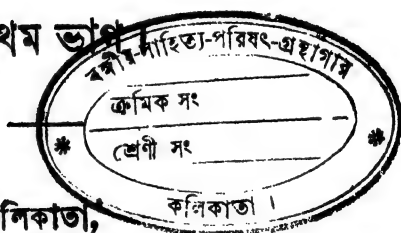 থম ভাগ।
বঙ্গীয়-সাহিত্য-পরিষৎ-গ্রন্থাগার
ক্রমিক সং
শ্রেণী সং
কলিকাতা।
লিকাতা,